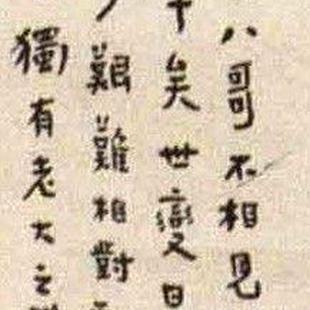 八哥不相見
年矣世變日
艱難相對
獨有老大之